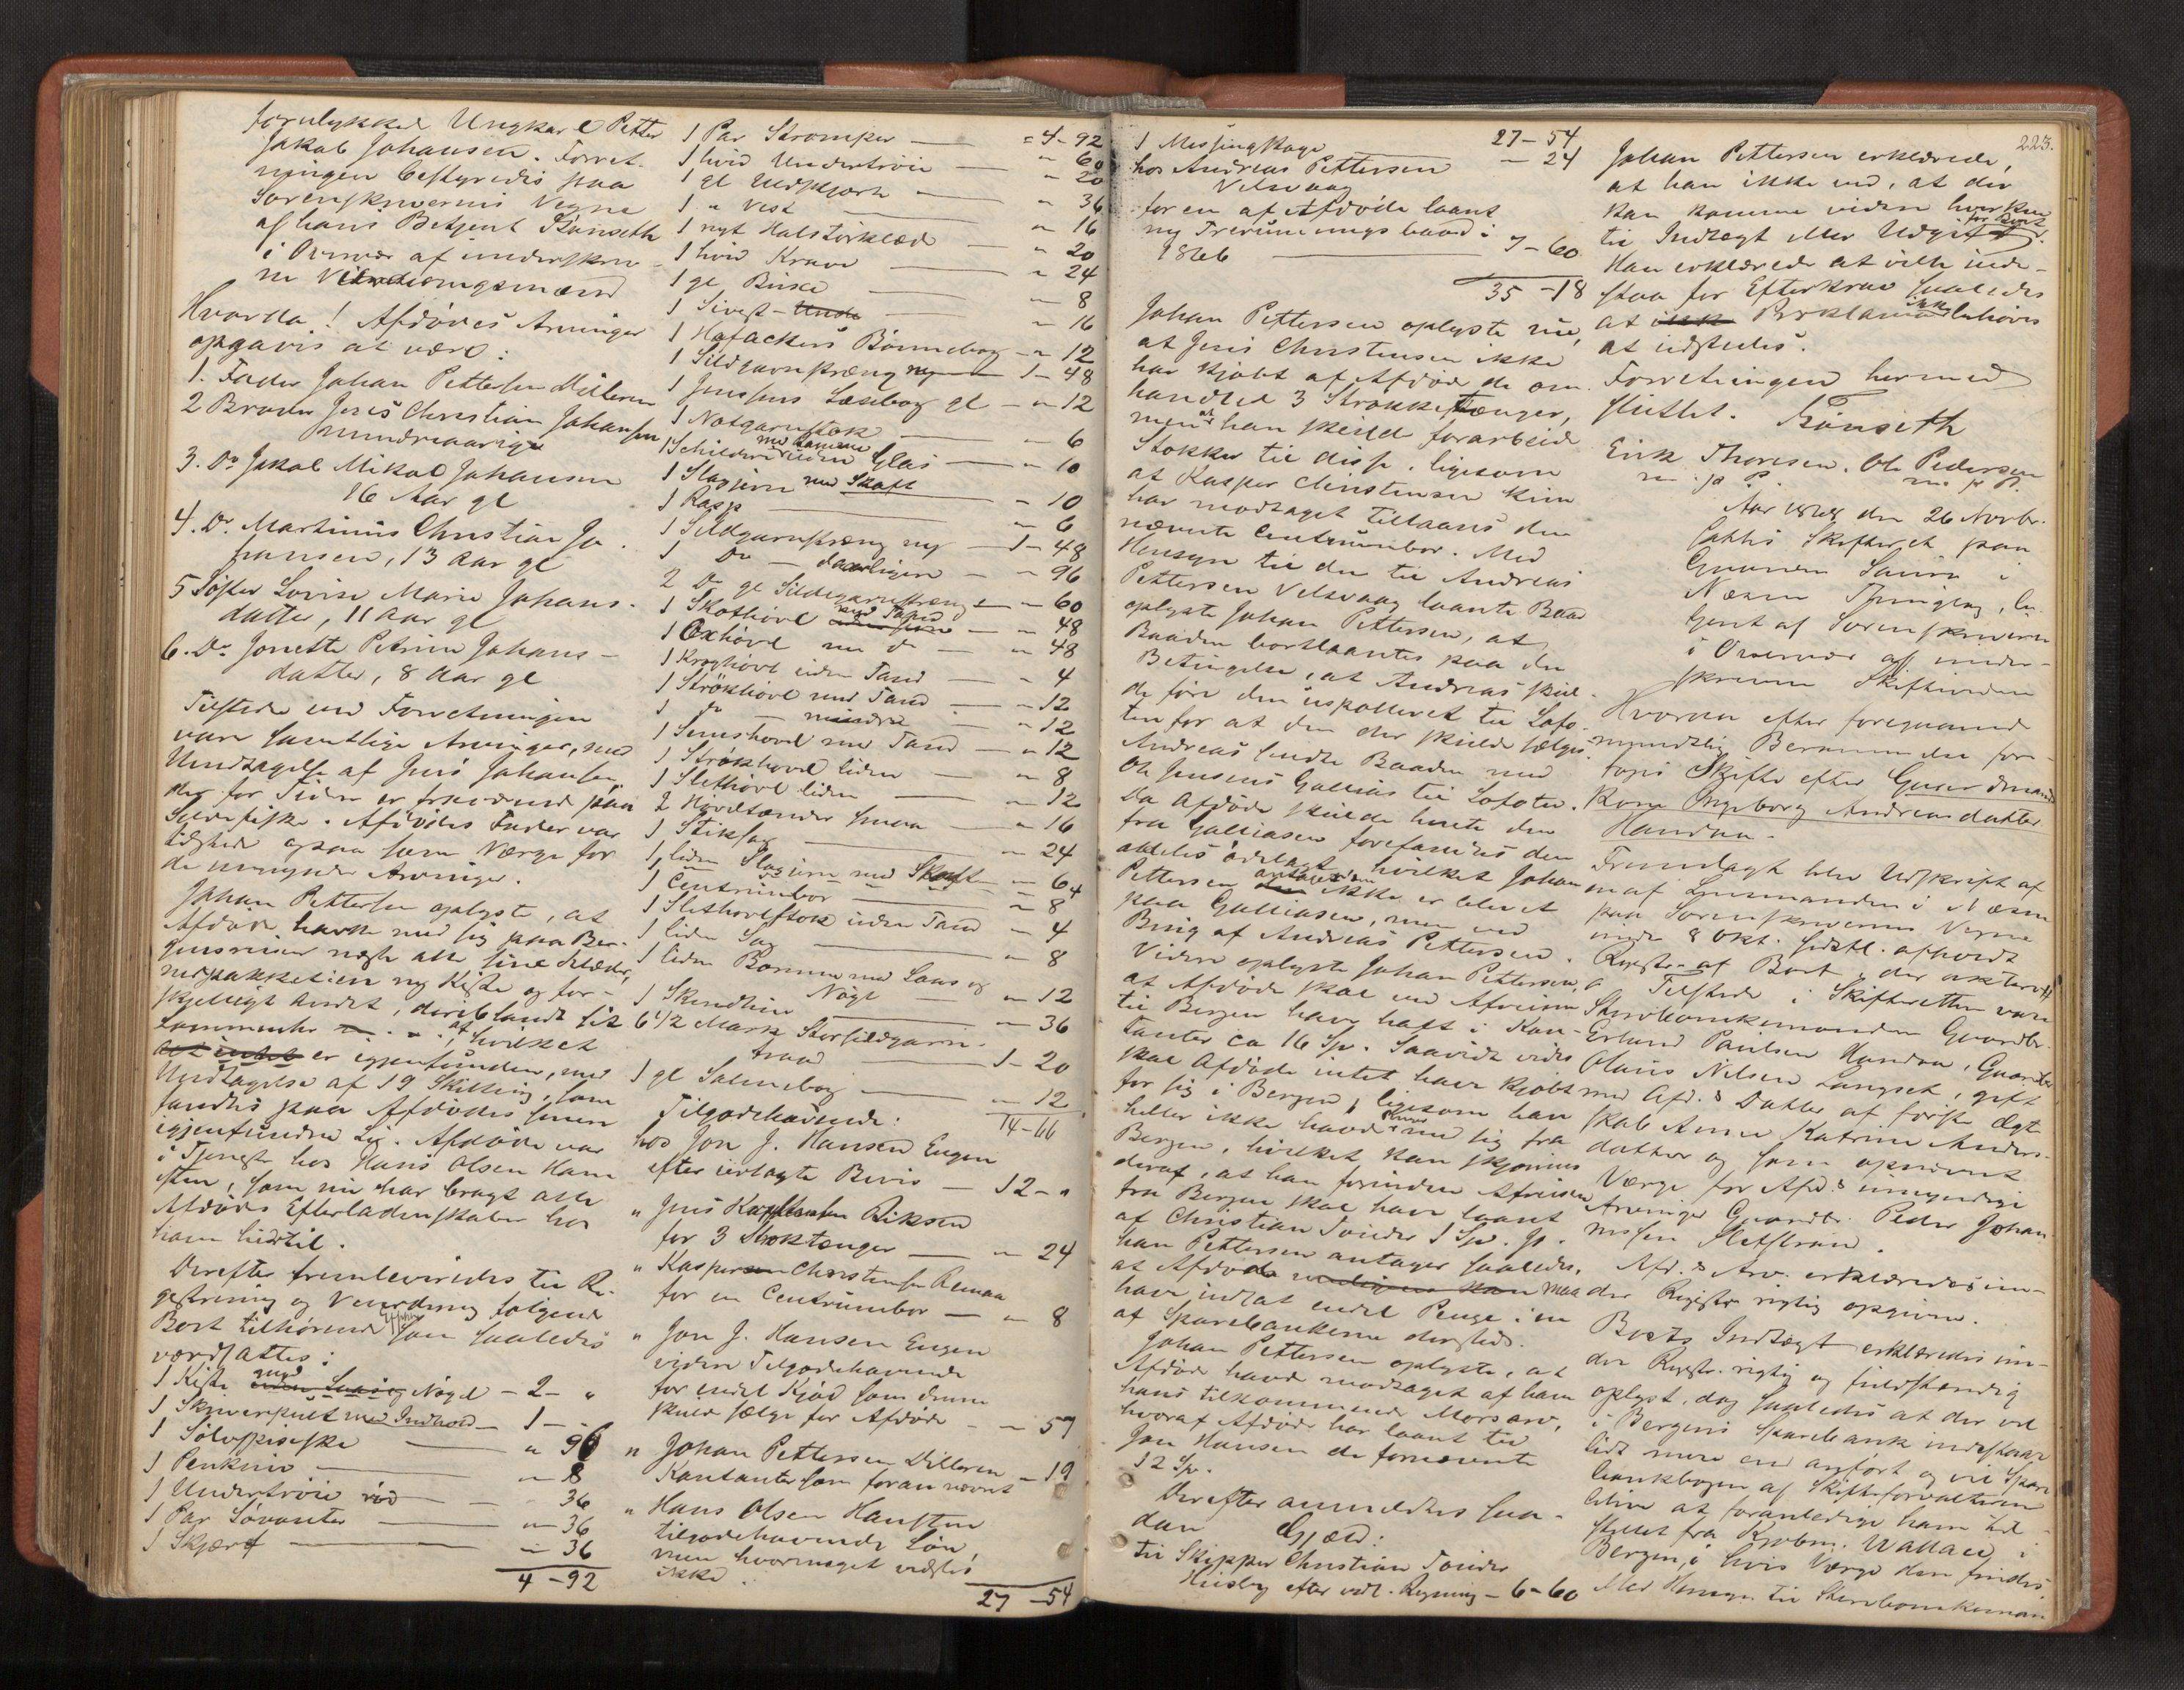 forulykkel Ungkarl Petter
Jakob Johansen. Forret-
ningen bestyredes paa
Sorenskriverens Vegne
af hans Betjent Bönseth
i Overvær af underskrev-
ne Vurderingsmænd
Hvorda! Afdödes Arvinger
opgaves at være:
1. Fader Johan Pettersen Dilleren
2 Broder Jens Christian Johansen
myndreaarig
3. Do Jakob Mikal Johansen
16 Aar gl
4. Do Martinus Christian Jo-
hansen, 13 Aar gl
5 Söster Lovise Marie Johans-
datter, 11 Aar gl
6. Do Jonette Petrine Johans-
datter, 8 Aar gl
Tilstede ved Forretningen
vare samtlige Arvinger, med
Undtagelse af Jens Johansen,
der for Tiden er fraværende paa
Sildefiske. Afdödes Fader var
tilstede ogsaa som Værge for
de umyndige Arvinger.
Johan Pettersen oplyste, at
Afdöde havde med sig paa Ber-
gensreisen næsten alle sine Klæder,
nedpakket i en ny Kiste og for-
skjelligt Andet, deriblandt sit
Lommeuhr af hvilket
intet er igjenfunden, med
Undtagelse af 19 Skilling, som
fandtes paa Afdödes senere
igjenfundne Lig. Afdöde var
i Tjeneste hos Hans Olsen Ham
sten, som nu har bragt alle
Afdödes Efterladenskaber hos
ham hidtil.
Derefter fremleveredes til Re-
gistrering og Vurdering fölgende
Boet tilhörende Effekter som saaledes
værdsattes:
1 Kiste med Nögel - 2 - "
1 Skriverpult med Indhold - 1 - -
1 Sölvspiseske " 96
1 Penkniv - 8
1 Undertröie röd - 36
1 Par Sövanter - 36
1 Skjærf - 36
4 - 92
1 Par Strömper = 4 - 92
1 hvid Undertröie " 60
1 gl Uldskjorte " 20
1 " Vest " 36
1 nyt Halstörklæde " 16
1 hvid Krave " 20
1 gl Buxe " 24
1 " 8
1 Hafackers Bönnebog " 16
1 Sildgarnstræng ny - " 12
1 Jensens Læsebog gl 1 - 48
1 Notgarnstok " 12
1 Schilderi med Ramme uden Glas " 6
1 Slagjern med Skaft " 10
1 Rasp " 10
1 Sildgarnstræng ny " 6
1 Do - daarligere 1 - 48
2 Do gl Sildegarnstrænge " 96
1 Skothövl med Tand " 60
1 Oxhövl med do " 48
1 Kroghövl uden Tand " 48
1 Strökhövl med Tand " 4
1 do - mindre " 12
1 Simshövl med Tand " 12
1 Strökhövl liden " 12
1 Slethövl liden " 8
2 Hövltænder smaa " 12
1 Stiksag " 16
1 liden Slagjern med Skaft " 24
1 Centrumbor " 64
1 Slethövlstok uden Tand " 8
1 liden Sag " 4
1 liden Bomme med Laas og " 8
Nögl " 12
1 Skindtröie " 36
6 1/2 Mark Storsildgarn-
traad 1 - 20
1 gl Salmebog " 12
14 - 66
Tilgodehavende:
hos Jon J. Hansen Eugen
efter udlagte Bevis - 12 - "
" Jens Riksen
for 3 Stroktænger " 24
" Kasper Christensen
for en Centrumbor " 8
" Jon J. Hansen Eugen
videre Tilgodehavende
for endel Kjöd som denne
skulde sælge for Afdöde - 57
" Johan Pettersen Dilleren
Kontanter som foran nævnt - 19
" Hans Olsen Hansten
tilgodehavende Lön,
men hvormeget vidstes
ikke.
27 - 54
27 - 54
1 Messingkage - 24
hos Andreas Pettersen
Velsvaag
for en af Afdöde laant
ny Trerumsbaad i
1866 7 - 60
35 - 18
Johan Pettersen oplyste nu,
at Jens Christensen ikke
har kjöbt af Afdöde de om-
handled 3 Stroktænger,
men at han skulde forarbeide
Stokker til disse, ligesom
at Kasper Christensen kun
har modtaget tillaans den
nævnte Centrumbor. Med
Hensyn til den til Andreas
Pettersen Velsvaag laante Baad
oplyste Johan Pettersen, at
Baaden bortlaantes paa den
Betingelse, at Andreas skul-
de före den uskadt til Lofo-
ten for at den der skulde sælges.
Andreas sendte Baaden med
Ole Jensens Galeias til Lofoten.
Da Afdöde skulde hente den
fra Galeiasen forefandtes den
aldeles ödelagt, hvilket Johan
Pettersen antager ikke er blevet
paa Galeiasen, men ved
Brug af Andreas Pettersen.
Videre oplyste Johan Pettersen,
at Afdöde skal ved Afreisen
til Bergen have haft i Kon-
tanter ca 16 Sp. Saavidt vides
skal Afdöde intet have kjöbt
for sig i Bergen, ligesom han
heller ikke havde med sig fra
Bergen, hvilket kan skjönnes
deraf, at han forinden Afreisen
fra Bergen skal have laant
af Christian Tönder 1 Sp. Jo-
han Pettersen antager saaledes,
at Afdöde maa
have indsat endel Penge i en
af Sparebankerne dersteds.
Johan Pettersen oplyste, at
Afdöde havde modtaget af ham
hans tilkommende Morsarv,
hvoraf Afdöde har laant til
Jon Hansen de fornævnte
12 Sp.
Derefter anmeldtes saa-
dan Gjæld:
til Skipper Christian Tönder
Husby efter vedl. Regning - 6 - 60
223.
Johan Pettersen erklærede,
at han ikke ved, at der
kan komme videre hverken
til Indtægt eller Udgift for Boet.
Han erklærede at ville inde-
staa for Efterkrav saaledes
at Proklama ikke behöves
at udstedes.
Forretningen hermed
sluttet. Bönseth
Erik Thoresen. Ole Pedersen
m. p. P. m. p. P.
Aar 1868 den 26 Novbr.
sattes Skifteret paa
Gaarden Saura i
Næsne Thinglag, be-
tjent af Sorenskriveren
i Overvær af under-
skrevne Skiftevidner
Hvorda efter foregaaende
mundtlig Berammelse fore-
toges Skifte efter Gaardmands
Kone Ingeborg Andreasdatter
Handnæs.
Fremlagt blev Udskrift af
en af Lensmanden i Næsne
paa Sorenskriverens Vegne
under 8 Okt. sidstl. afholdt
Registr. af Boet, der akteredes
a Tilstede i Skifteretten vare
Sterbomkemanden Gaardbr.
Erland Paulsen Handnæs, Gaardbr.
Olaus Nilsen Langset, gift
med Afd.s Datter af förste Ægte
skab Anne Katrine Anders-
datter og som opnævnt
Værge for Afd.s umyndige
Arvinger Gaardbr. Peder Johan
nessen .
Afd.s Arv. erklæredes un-
der Registr. rigtig opgivne.
Boets Indtægt erklæredes un-
der Registr. rigtig og fuldstændig
oplyst, dog saaledes at der vel
i Bergens Sparebank indestaar
lidt mere end anfört og vil Spare
bankbogen af Skifteforvalteren
blive at foranledige ham til-
stillet fra Kjöbm. Wallace i
Bergen, i hvis Værge den findes
Med Hensyn til Sterbomkeman